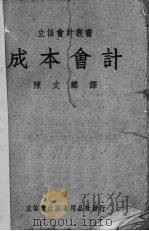 立信會計叢書
成本會計
陳文麟譯
立信會計圖書用品社發行